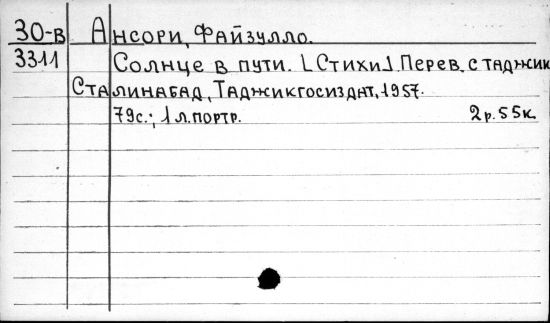 30-в Ансори, Файзулло.
3311 Солнце в пути. [Стихи]. Перев. с таджик
Сталинабад, Таджикгосиздат, 1957.
79с.; 1 л. портр. 2р. 55к.